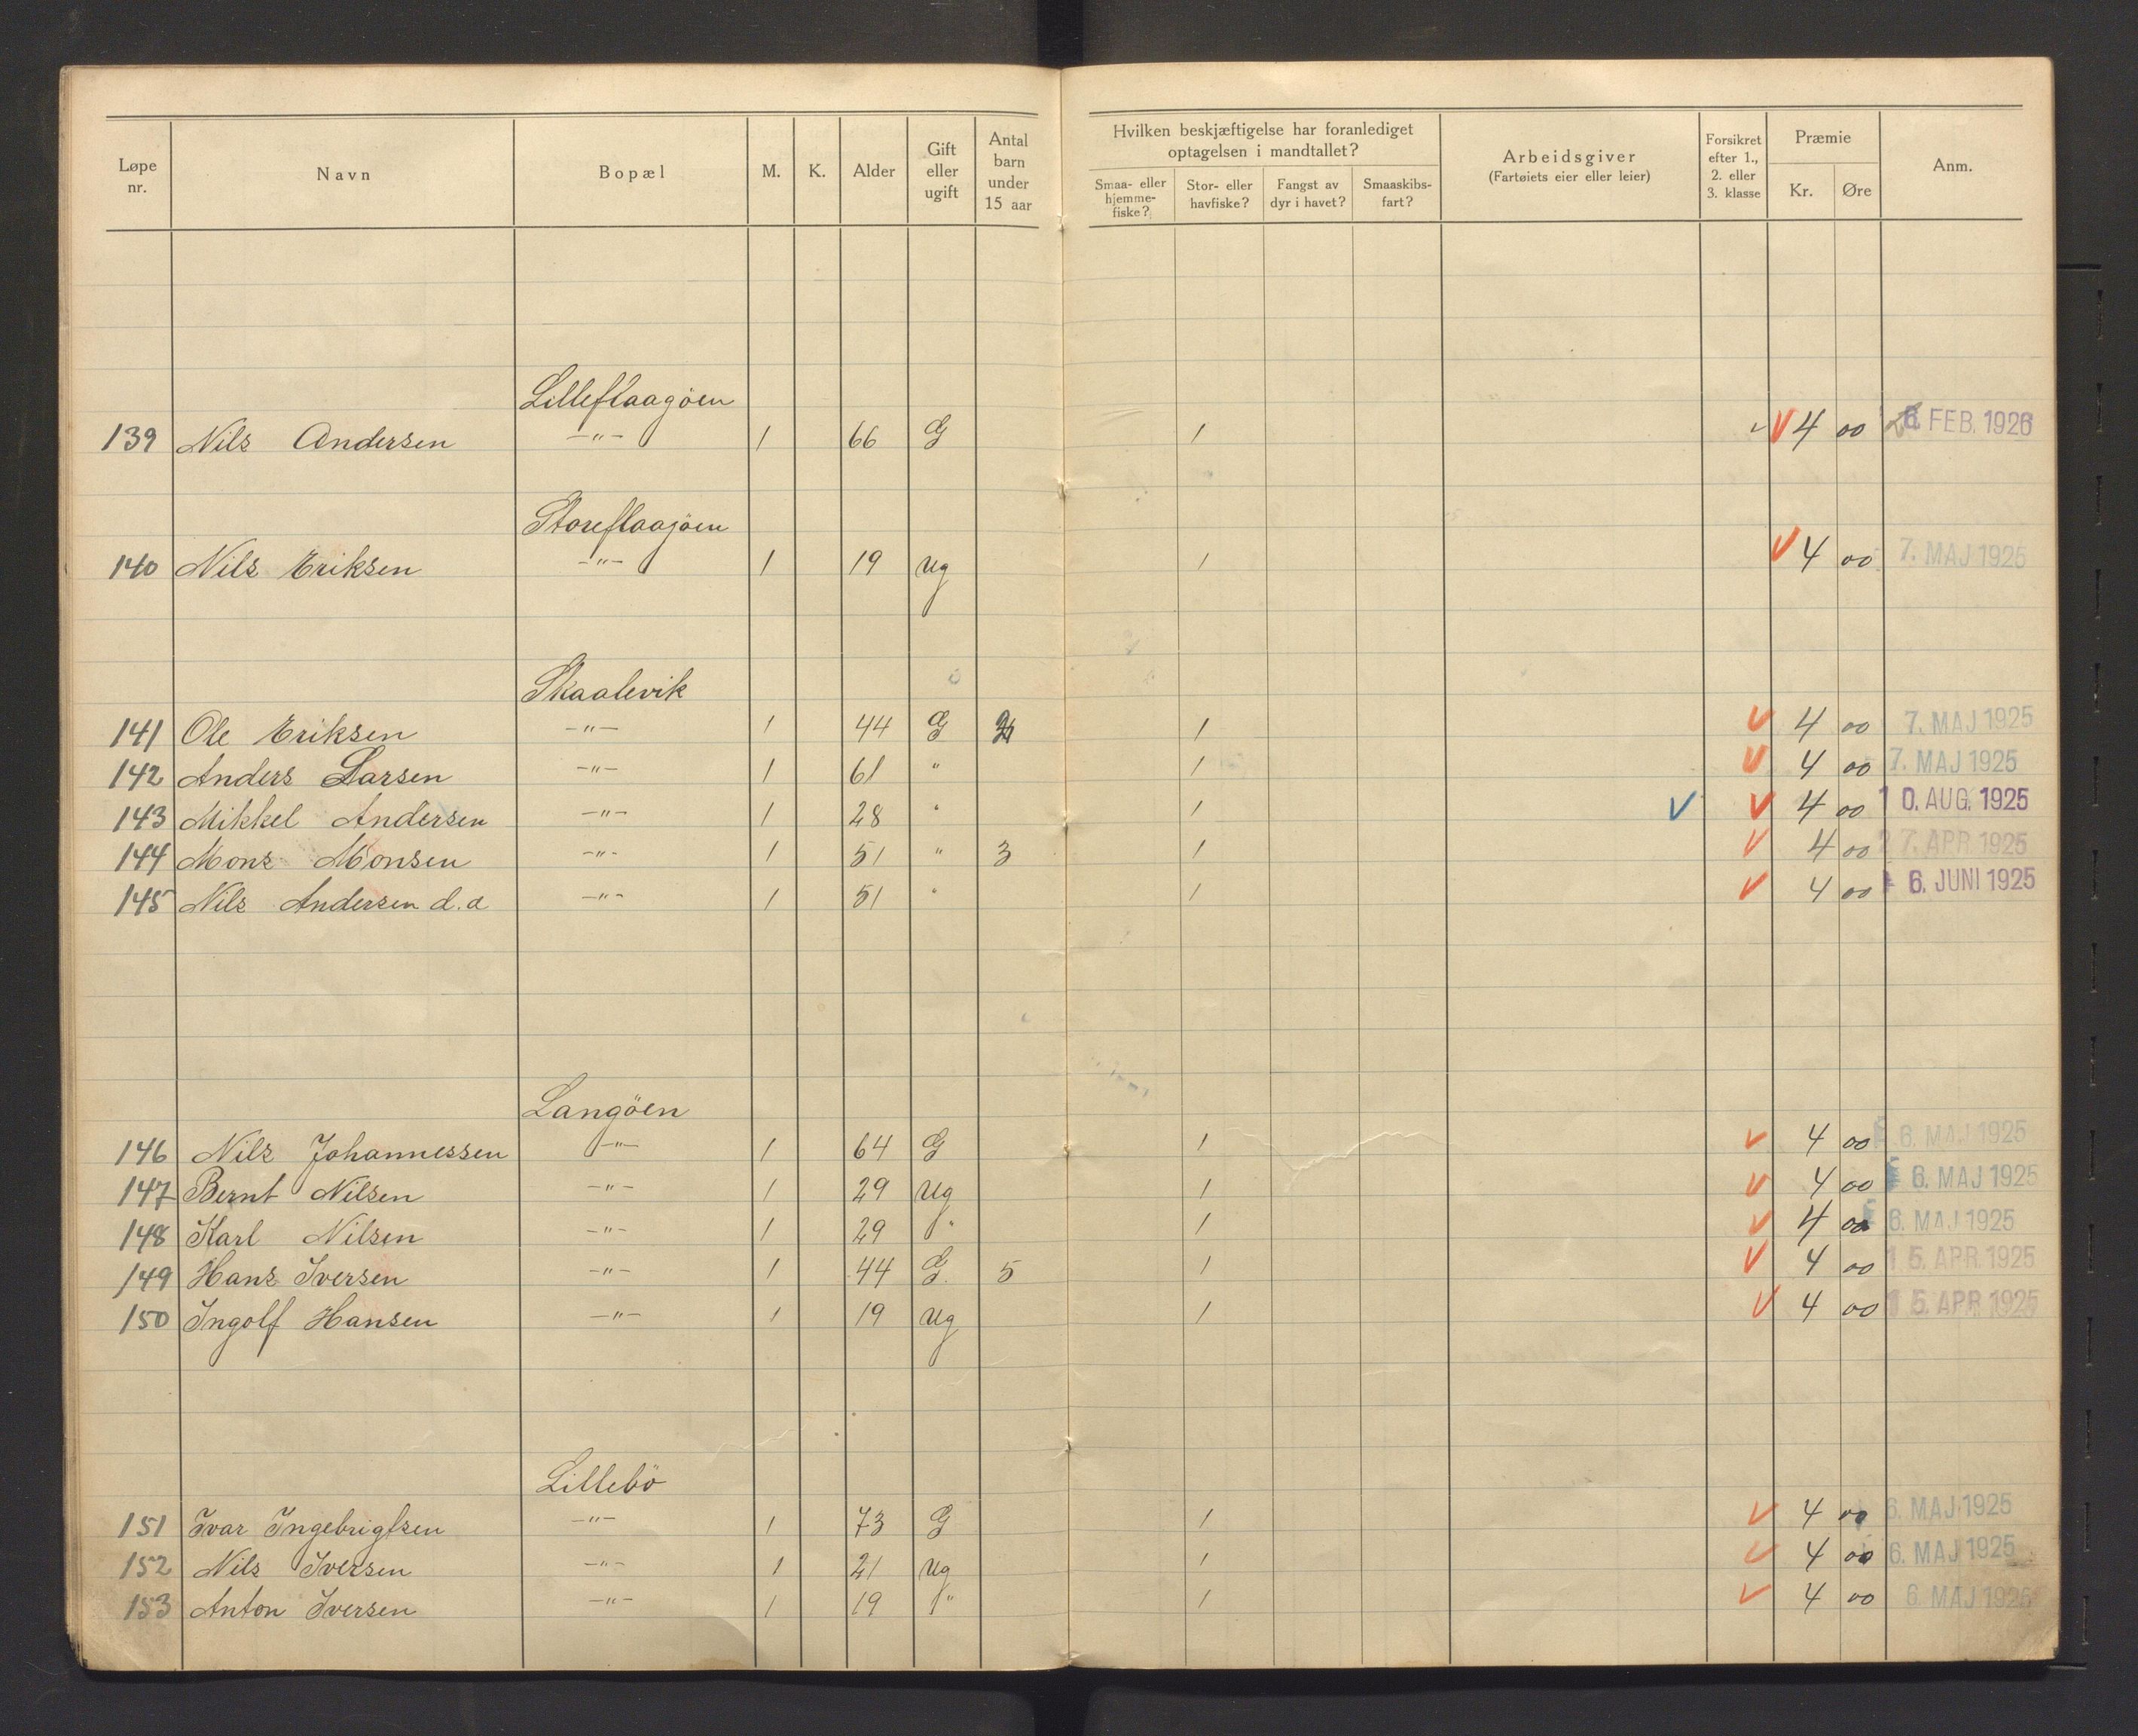 Løpe nr. Navn Bopæl M. K. Alder Gift eller ugift Antal barn under 15 aar Hvilken beskjæftigelse har foranlediget optagelsen i mandtallet? Smaa- eller hjemme-fiske? Stor- eller havfiske? Fangst av dyr i havet? Smaaskibs-fart? Arbeidsgiver (Fartøiets eier eller leier) Forsikret efter 1., 2. eller 3. klasse Præmie Kr. Øre Anm.
Lilleflaagöen
139 Nils Andersen —"— 1 66 G 1 4 00 FEB. 1926
Storeflaagöen
140 Nils Eriksen —"— 1 19 Ug 1 4 00 7. MAJ 1925
Skaalevik
141 Ole Eriksen —"— 1 44 G 1 4 00 7. MAJ 1925
142 Anders Larsen —"— 1 61 " 1 4 00 7. MAJ 1925
143 Mikkel Andersen —"— 1 28 " 1 4 00 10. AUG. 1925
144 Mons Monsen —"— 1 51 " 3 1 4 00 27. APR. 1925
145 Nils Andersen d.a —"— 1 51 " 1 4 00 6. JUNI 1925
Langöen
146 Nils Johannessen —"— 1 64 G 1 4 00 6. MAJ 1925
147 Bernt Nilsen —"— 1 29 Ug 1 4 00 6. MAJ 1925
148 Karl Nilsen —"— 1 29 " 1 4 00 6. MAJ 1925
149 Hans Iversen —"— 1 44 G. 5 1 4 00 15. APR. 1925
150 Ingolf Hansen —"— 1 19 Ug 1 4 00 15. APR. 1925
Lillebö
151 Ivar Ingebrigtsen —"— 1 73 G 1 4 00 6. MAJ 1925
152 Nils Iversen —"— 1 21 Ug 1 4 00 6. MAJ 1925
153 Anton Iversen —"— 1 19 " 1 4 00 6. MAJ 1925